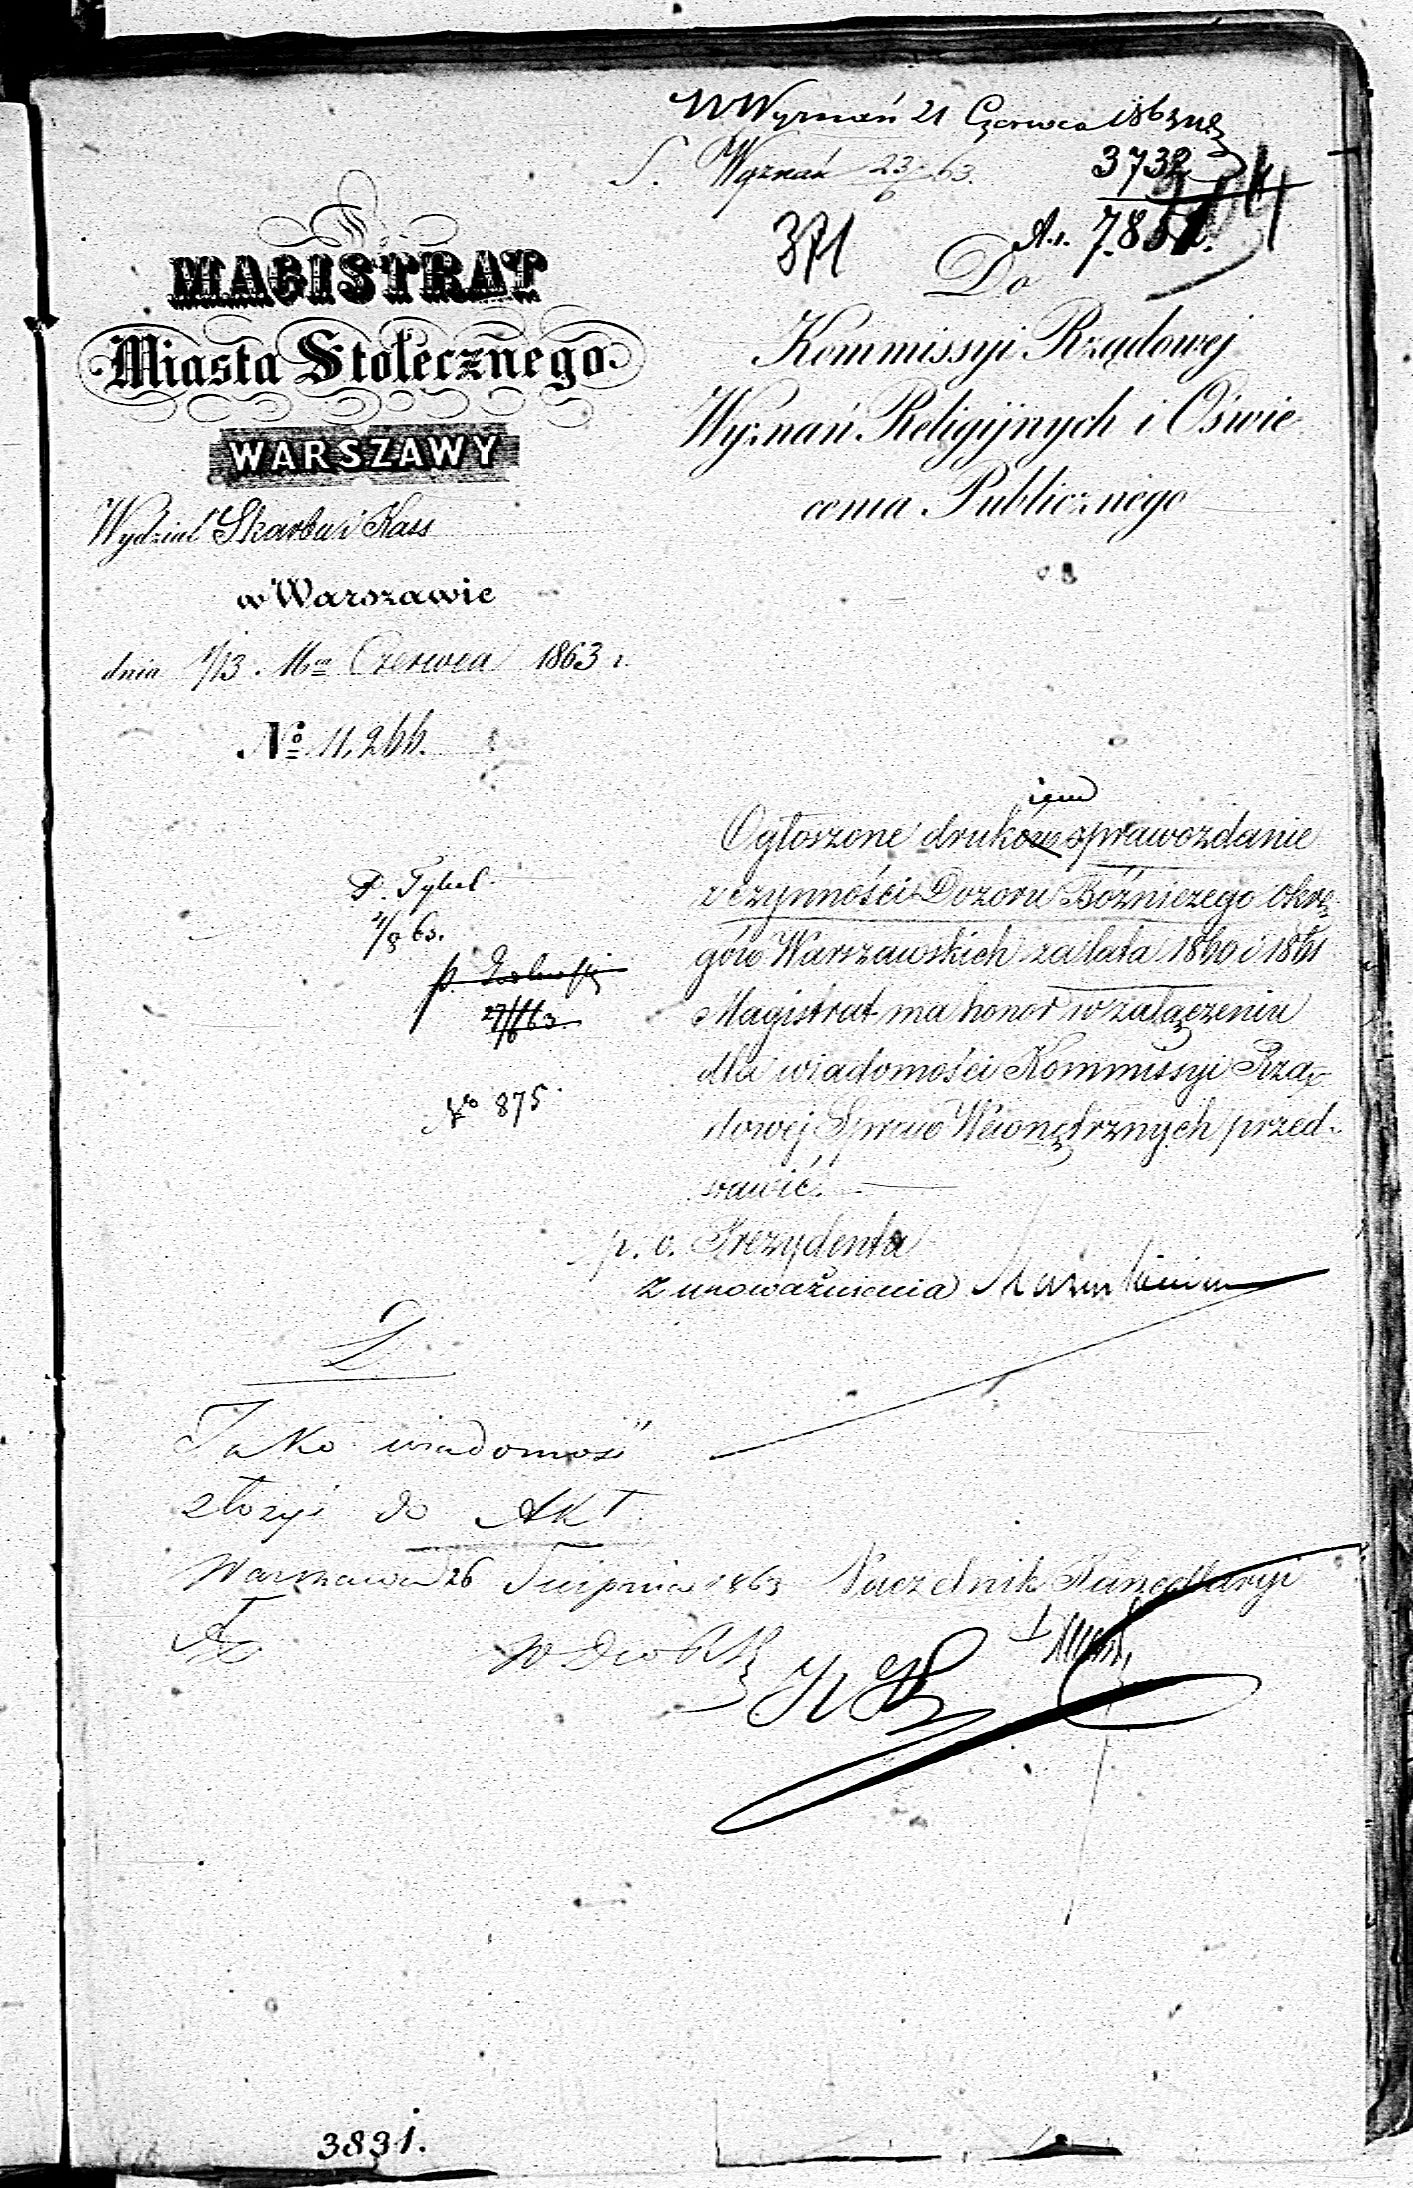 W Wyznań 21 Czerwca 1863
S. Wyznań 23/6 63.
3732
371
7851.
Do
Kommissyi Rządowej
Wyznań Religijnych i Oświe
cenia Publicznego
MAGISTRAT
Miasta Stołecznego
WARSZAWY
Wydział Skarbu i Kass
w Warszawie
dnia 1/13. Mca Czerwca 1863 r.
No. 11,266.
iem
Ogłoszone drukow sprawozdanie
z czynności Dozoru Bóżniczego Okrę-
gów Warszawskich za lata 1860 i 1861
Magistrat ma honor w załączeniu
dla wiadomości Kommissyi Rzą-
dowej Spraw Wewnętrznych przed-
stawić.
P. Tykel
1/8 63.
27/6 63
No 875.
p. o. Prezydenta
z upoważnienia
D.
Jako wiadomość
złożyć do Akt
Warszawa 26 Sierpnia 1863 Naczelnik Kancellaryi
3831.